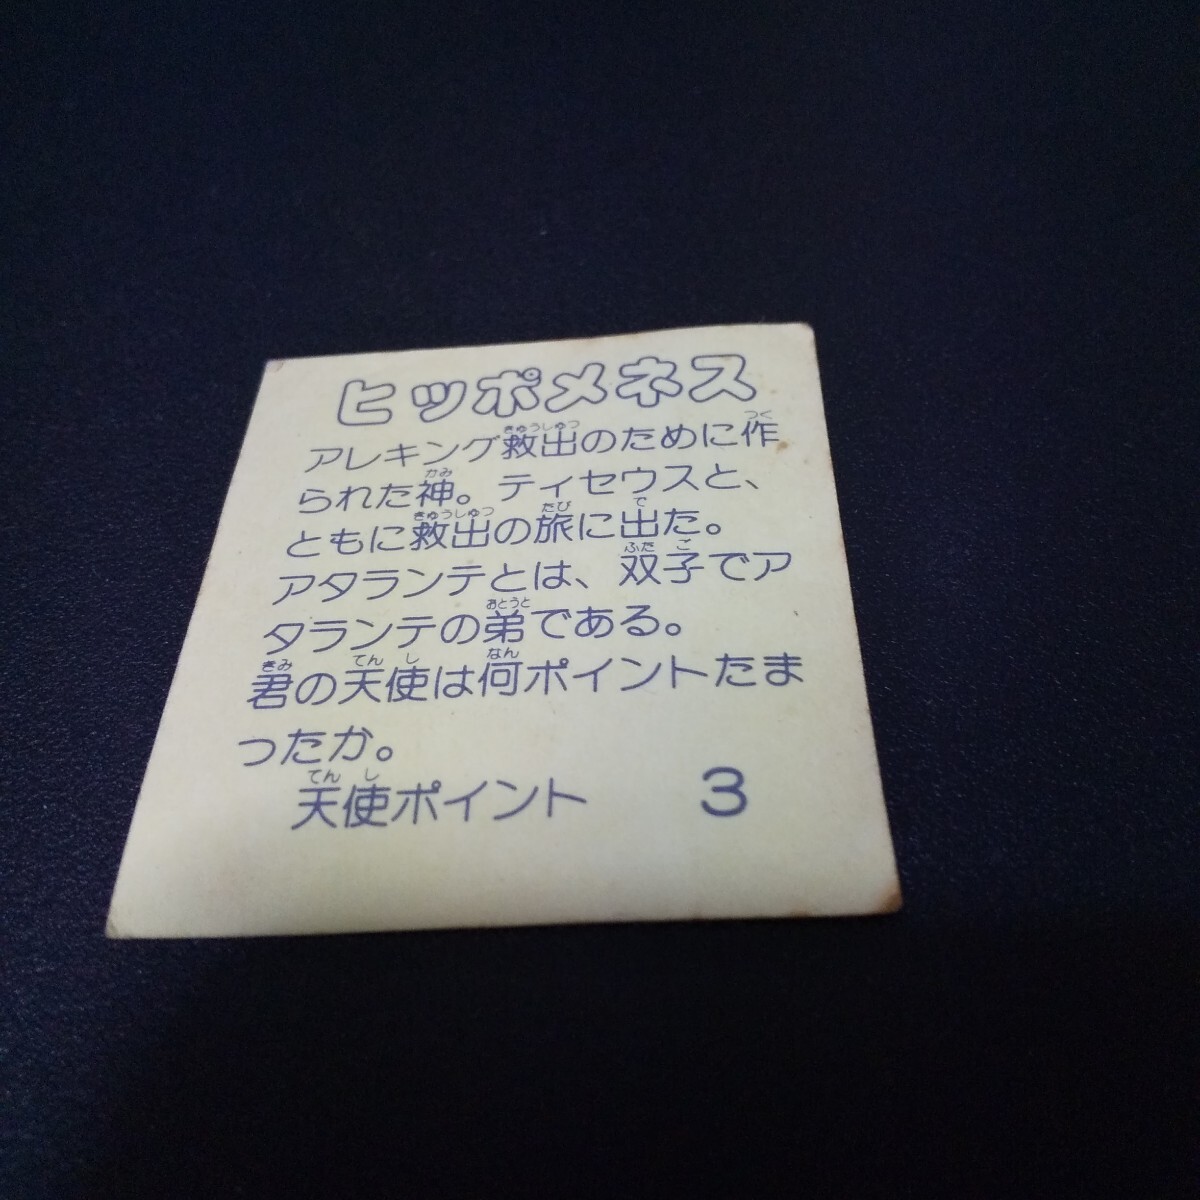 ヒッポメネス
アレキング救出のために作
られた神。ティセウスと、
ともに救出の旅に出た。
アタランテとは、双子でア
タランテの弟である。
君の天使は何ポイントたま
ったか。
天使ポイント 3